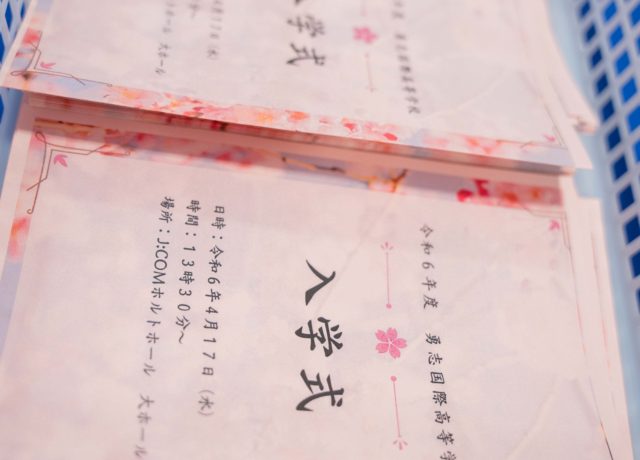 令和６年度　勇志国際高等学
入学式
日時：令和６年４月１７日（水）
時間：１３時３０分～
場所：J:COMホルトホール　大ホール
国際高等学校
入学式
月１７日（水）
分～
ホール　大ホール